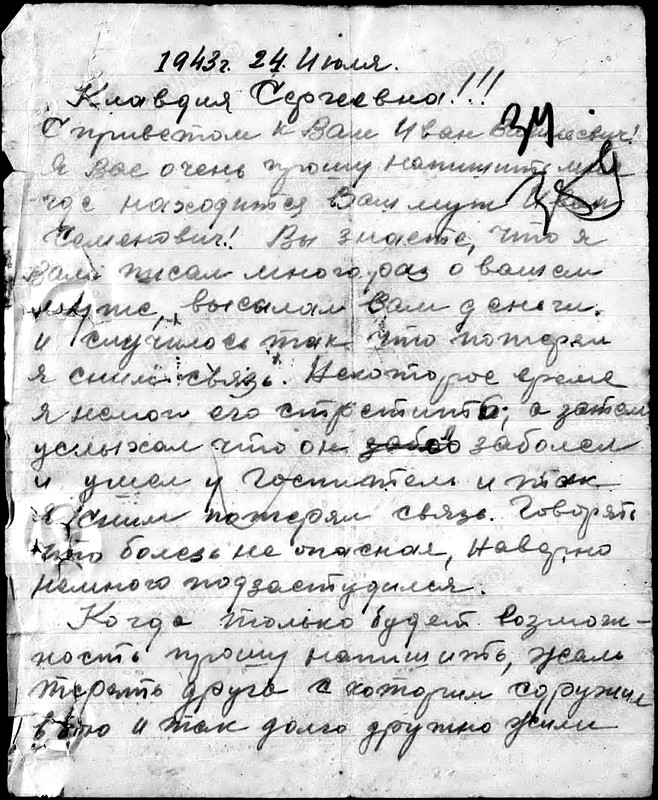 1943 г. 24 Июля.
Клавдия Сергеевна!!!
С приветом к Вам Иван Васильевич!
Я Вас очень прошу напишите мне
где находится Ваш муж Иван
Семенович! Вы знаете, что я
Вам писал много раз о вашем
муже, высылал Вам деньги.
и случилось так что потерял
я сним связь. Некоторое время
я немог его стретить, а затем
услыхал что он заболел
и ушел у госпиталь и так
я сним потерял связь. Говорять
что болезь не опасная, наверно
немного подзастудился.
Когда только будет возмож-
ность прошу напишить, жаль
терять друга с котором сдружил
и так долго дружно жили